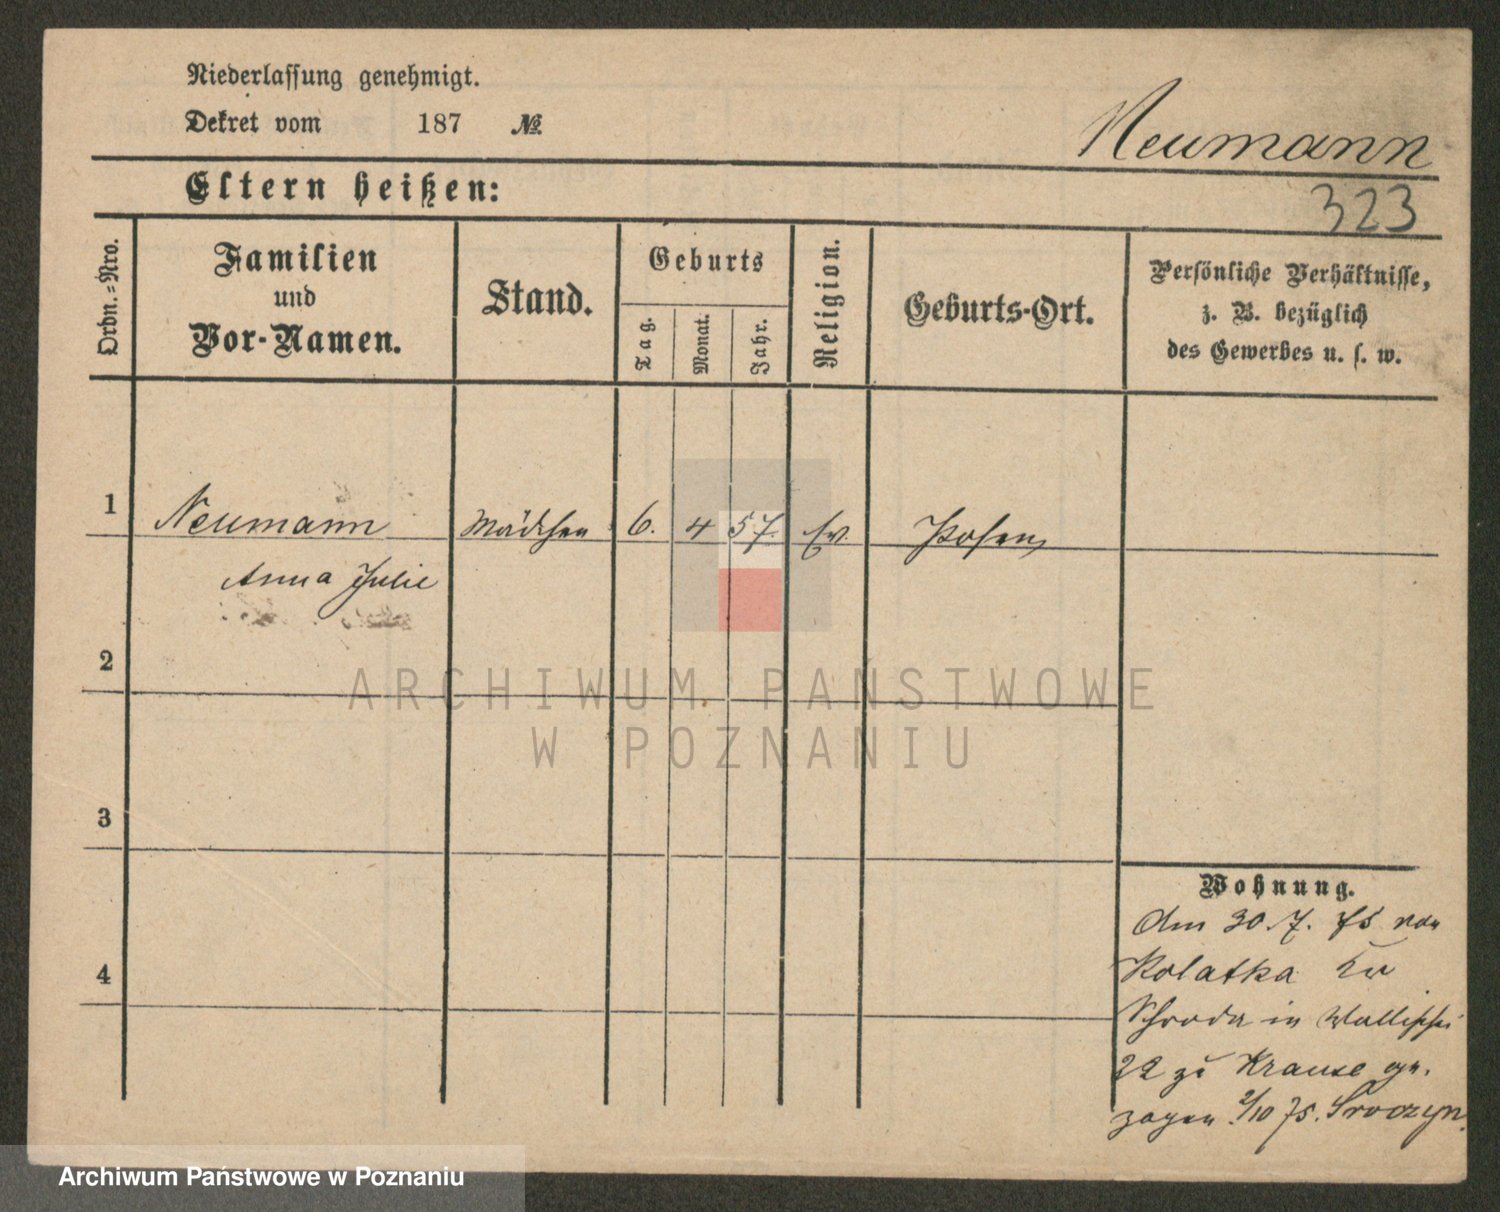 Niederlassung genehmigt.
Dekret vom 187 №
Neumann
Eltern heißen:
323
Ordn.-Nro.
Familien
und
Vor-Namen.
Stand.
Geburts
Tag.
Monat.
Jahr.
Religion.
Geburts-Ort.
Persönliche Verhältnisse,
z. B. bezüglich
des Gewerbes u. s. w.
1 Neumann Mädchen 6. 4 57. Ev. Posen
Anna Julie
2
ARCHIWUM PAŃSTWOWE
W POZNANIU
3
Wohnung.
Am 30. 7. 75 von
4
Kolatka Kr
Schroda in Wallischei
22 zu Krause ge-
zogen. 2/10 75. Sroczyn.
Archiwum Państwowe w Poznaniu